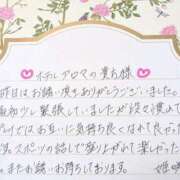 ホテルアロマの貴方様
昨日はお誘い頂きありがとうございました。
最初少し緊張していましたが段々慣れて
プレイではお互いに気持ち良くなれて良かった
スポーツの話しで盛り上がれて楽しかった
またお誘いお待ちしております。